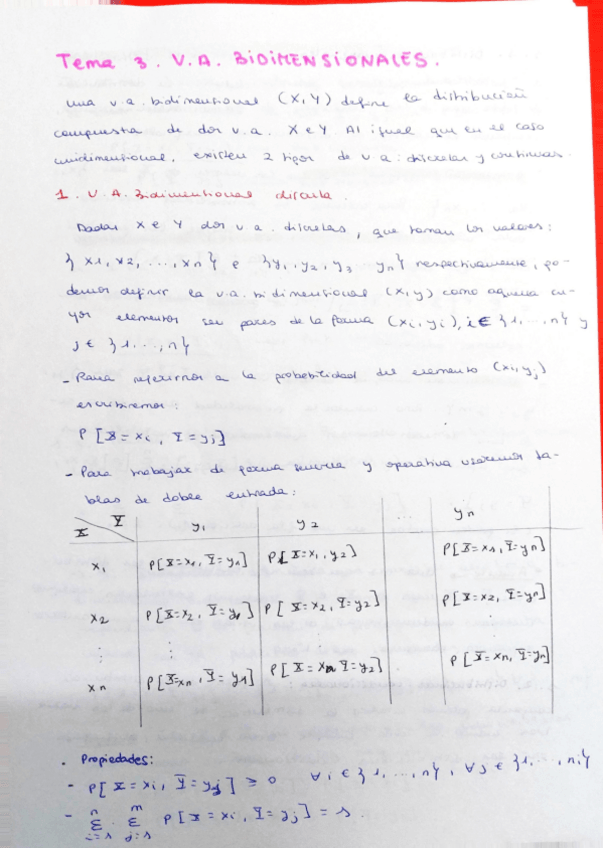 Tema 3. V.A. BIDIMENSIONALES.
una v.a. bidimensional (X,Y) define la distribución
compuesta de dos v.a. X e Y Al igual que en el caso
unidimensional, existen 2 tipos de v.a: discretas y continuas.
1. V.A. Bidimensional discreta
Dadas X e Y dos v.a. discretas, que toman los valores:
{x1, x2, ..., xn} e {y1, y2, y3 yn} respectivamente, po-
demos definir la v.a. bidimensional (X,y) como aquella cu-
yos elementos son pares de la forma (xi, yi), i∈{1,...,n} y
j∈ {1...,n}
- Para referirnos a la probabilidad del elemento (xi,yj)
escribiremos:
P [X = xi, Y = yj]
- Para trabajar de forma sencilla y operativa usaremos ta-
blas de doble entrada:
X Y y1 y2 ... yn
x1 P[X=x1, Y=y1] P[X=x1, y2] P[X=x1, Y=yn]
x2 P[X=x2, Y=y1] P[X=x2, Y=y2] P[X=x2, Y=yn]
⋮ ⋮ ⋮ ⋮
xn P[X=xn, Y=y1] P[X=xn Y=y2] P[X=xn, Y=yn]
. Propiedades:
- P[X=xi, Y=yj] ≥ 0 ∀i∈{1,...,n}, ∀j∈{1,...,n,}
- n Σ i=1 . m Σ j=1 P[X=xi, Y=yj] = 1.